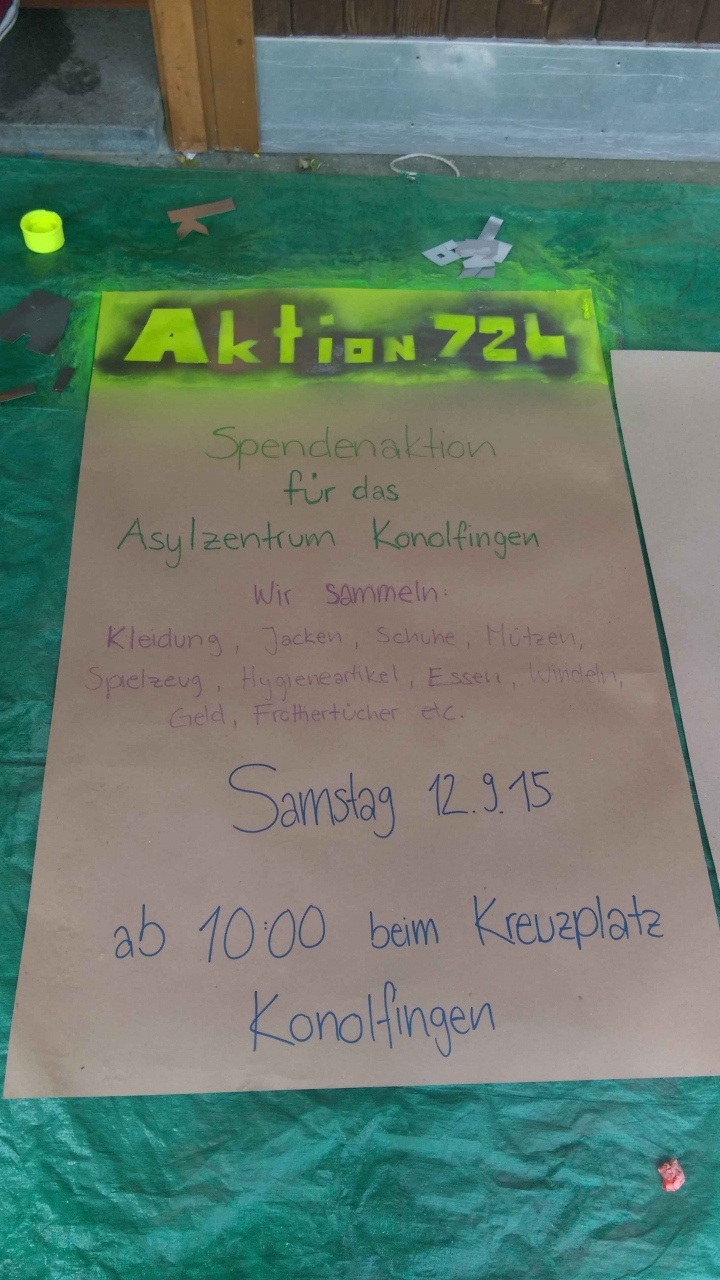 Aktion 72h
Spendenaktion
für das
Asylzentrum Konolfingen
Wir sammeln:
Kleidung, Jacken, Schuhe, Mützen,
Spielzeug, Hygieneartikel, Essen, Windeln,
Geld, Frottiertücher etc.
Samstag 12.9.15
ab 10:00 beim Kreuzplatz
Konolfingen